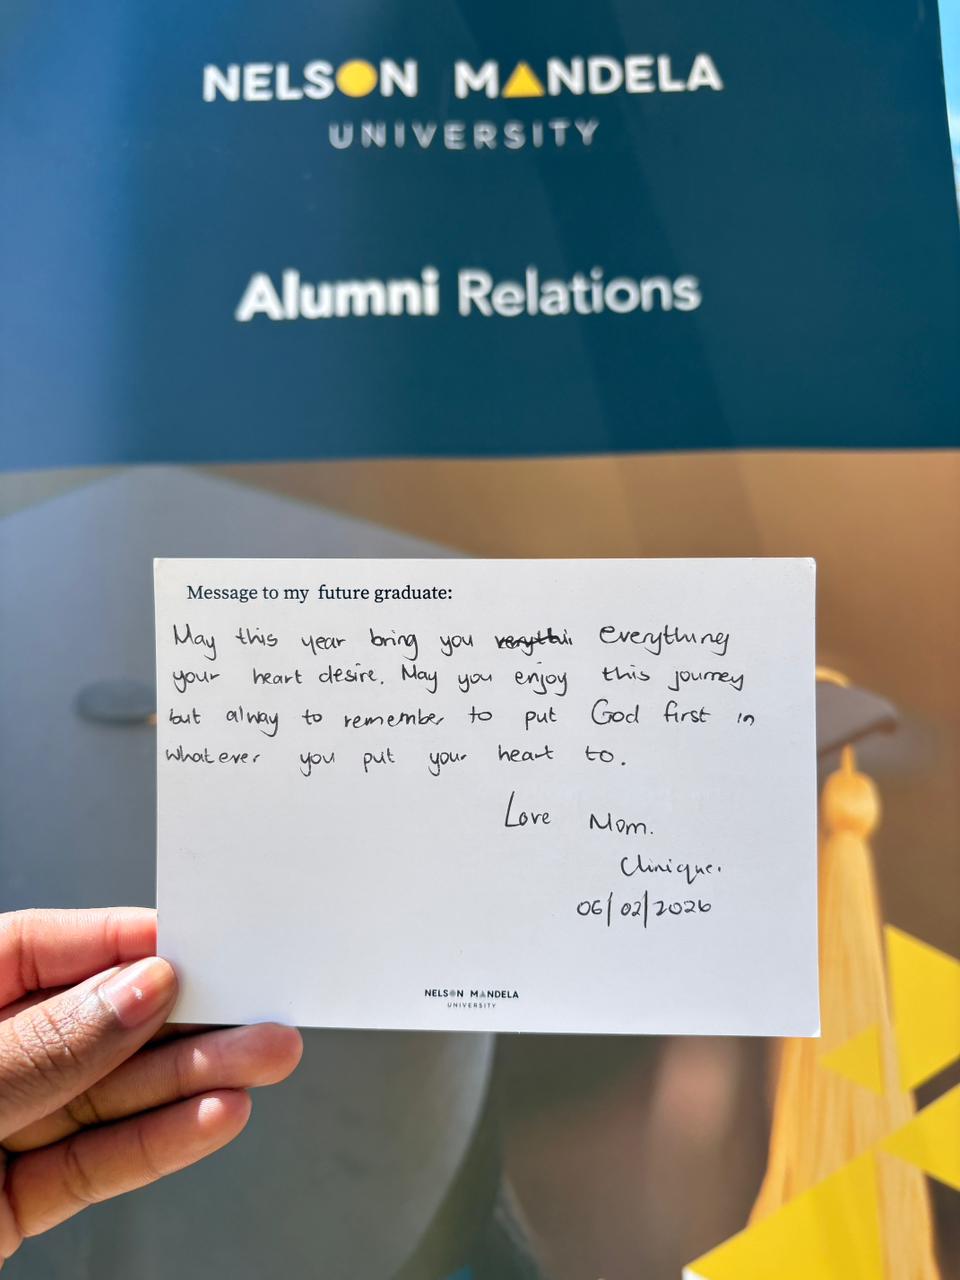 NELSON MANDELA
UNIVERSITY
Alumni Relations
Message to my future graduate:
May this year bring you verythin everything
your heart desire. May you enjoy this journey
but alway to remember to put God first in
whatever you put your heart to.
Love Mom.
Clinique.
06/02/2026
NELSON MANDELA
UNIVERSITY